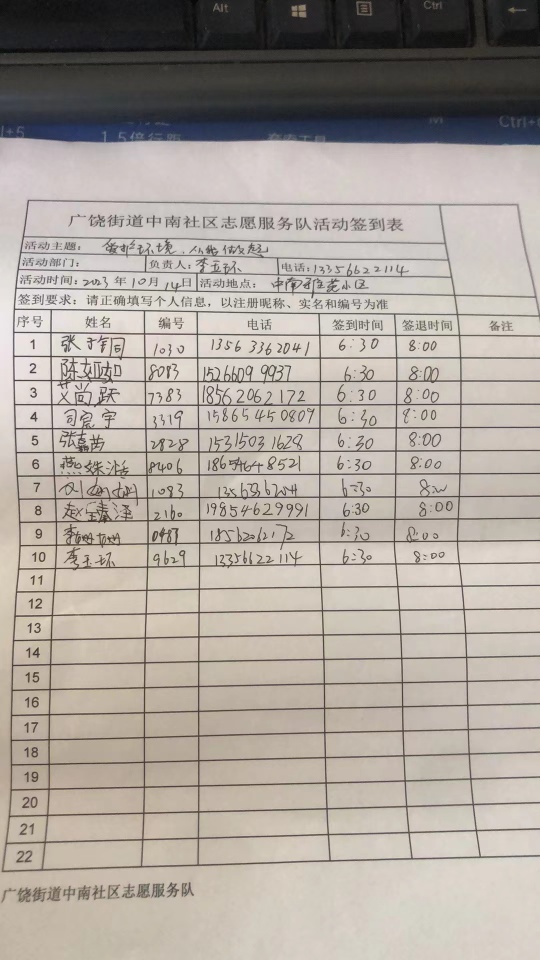 Alt
Ctrl
1.5倍行距
Ctrl+
广饶街道中南社区志愿服务队活动签到表
活动主题：爱护环境，从我做起
活动部门： 负责人：李玉环 电话：13356622114
活动时间：2023年10月14日 活动地点：中南雅苑小区
签到要求：请正确填写个人信息，以注册昵称、实名和编号为准
序号 姓名 编号 电话 签到时间 签退时间 备注
1 1030 13563362041 6:30 8:00
2 8083 15266099937 6:30 8:00
3 7383 18562062172 6:30 8:00
4 司宸宇 3319 15865450809 6:30 8:00
5 张嘉茜 2828 15315031628 6:30 8:00
6 8406 18654648521 6:30 8:00
7 1083 13563362041 6:30 8:00
8 2160 19854629991 6:30 8:00
9 0483 18562062172 6:30 8:00
10 李玉环 9629 13356622114 6:30 8:00
11
12
13
14
15
16
17
18
19
20
21
22
广饶街道中南社区志愿服务队